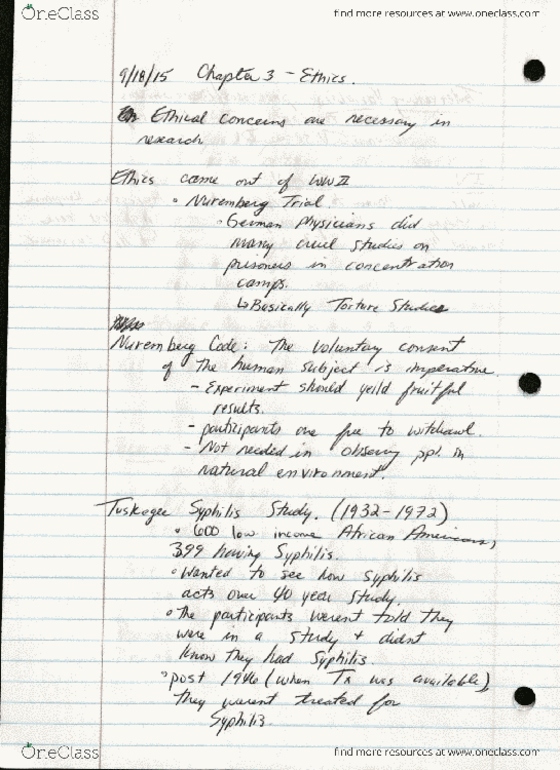 OneClass
find more resources at www.oneclass.com
9/18/15 Chapter 3 - Ethics.
Ethical concerns are necessary in
research
Ethics came out of WWII
• Nuremberg Trial
• German Physicians did
many cruel studies on
prisoners in concentration
camps.
↳ Basically Torture Studies
Nuremberg Code: The voluntary consent
of The human subject is imperative.
- Experiment should yeild fruitful
results.
- participants are free to withdrawl.
- Not needed in observing ppl. in
natural environment.
Tuskegee Syphilis Study. (1932-1972)
• 600 low income African Americans,
399 having Syphilis.
• Wanted to see how Syphilis
acts over 40 year study.
• The participants werent told they
were in a study + didnt
know they had Syphilis
• post 1946 (when Tx was available),
They werent treated for
Syphilis.
OneClass
find more resources at www.oneclass.com